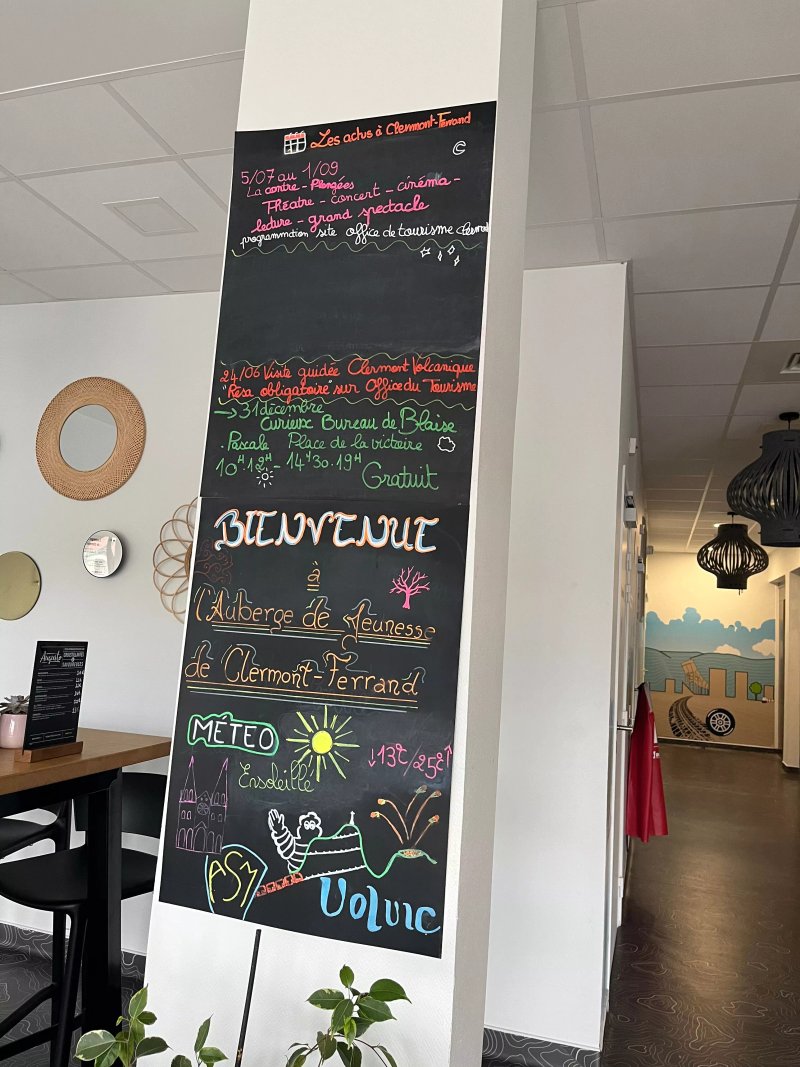 Les actus à Clermont-Ferrand
5/07 au 1/09
La contre-Plongées
Théatre - concert - cinéma -
lecture - grand spectacle
programmation site office de tourisme
24/06 Visite guidée Clermont Volcanique
"Résa obligatoire" sur Office du Tourisme
→ 31 décembre
Curieux Bureau de Blaise
Pascale Place de la victoire
10H.12H - 14H30.19H
Gratuit
BIENVENUE
à
l'Auberge de Jeunesse
de Clermont-Ferrand
MÉTEO
↓13°C/25°C↑
Ensoleillé
ASM
Volvic